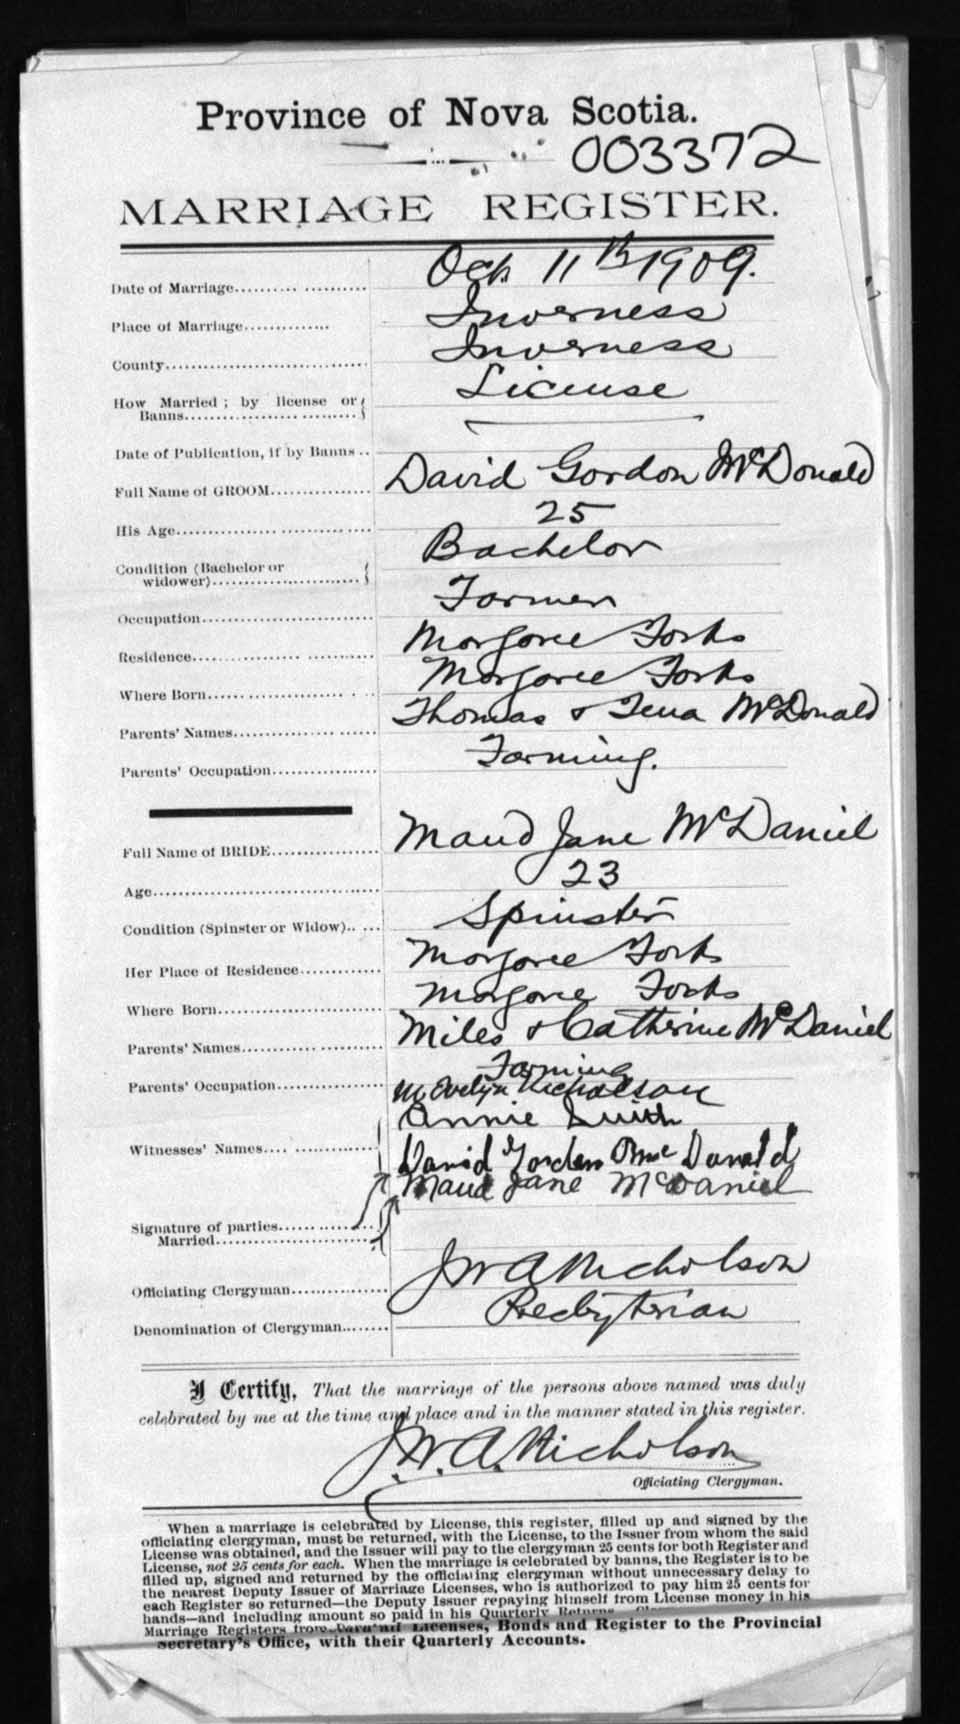 Province of Nova Scotia.
003372
MARRIAGE REGISTER.
Date of Marriage.................... Oct 11th 1909.
Place of Marriage.............. Inverness
County............................... Inverness
How Married ; by license or
Banns.............................. License
Date of Publication, if by Banns ..
Full Name of GROOM................ David Gordon McDonald
His Age............................... 25
Condition (Bachelor or
widower)........................ Bachelor
Occupation........................... Farmer
Residence............................ Margaree Forks
Where Born........................ Margaree Forks
Parents' Names...................... Thomas & Tena McDonald
Parents' Occupation................ Farming.
Full Name of BRIDE................ Maud Jane McDaniel
Age.................................... 23
Condition (Spinster or Widow)..... Spinster
Her Place of Residence............. Margaree Forks
Where Born.......................... Margaree Forks
Parents' Names..................... Miles & Catherine McDaniel
Parents' Occupation............... Farming
M. Evelyn Nicholson
Annie
Witnesses' Names.................. David Gorden Mc Donald
Maud Jane McDaniel
Signature of parties................
Married........................
Officiating Clergyman............... J W A Nicholson
Denomination of Clergyman........ Presbyterian
I Certify, That the marriage of the persons above named was duly
celebrated by me at the time and place and in the manner stated in this register.
J. W. A. Nicholson
Officiating Clergyman.
When a marriage is celebrated by License, this register, filled up and signed by the
officiating clergyman, must be returned, with the License, to the Issuer from whom the said
License was obtained, and the Issuer will pay to the clergyman 25 cents for both Register and
License, not 25 cents for each. When the marriage is celebrated by banns, the Register is to be
filled up, signed and returned by the officiating clergyman without unnecessary delay to
the nearest Deputy Issuer of Marriage Licenses, who is authorized to pay him 25 cents for
each Register so returned—the Deputy Issuer repaying himself from License money in his
hands—and including amount so paid in his Quarterly Returns.
Marriage Registers from Licenses, Bonds and Register to the Provincial
Secretary's Office, with their Quarterly Accounts.